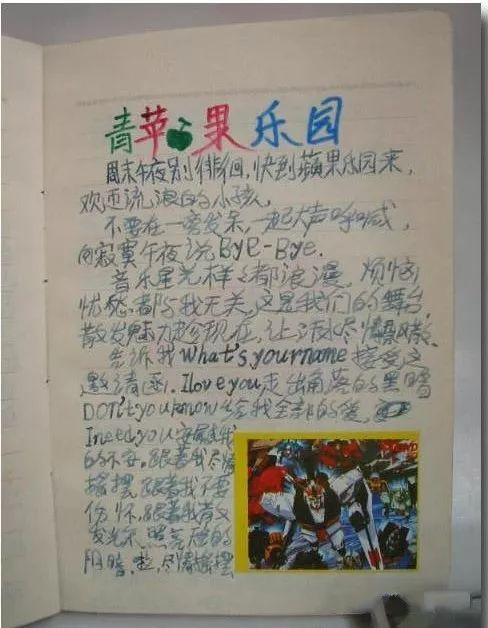 青苹果乐园
周末午夜别徘徊,快到蘋果乐园来,
欢迎流浪的小孩,
不要在一旁发呆,一起大声呼喊,
向寂寞午夜说Bye-Bye.
音乐星光样样都浪漫,烦恼
忧愁都与我无关,这是我们的舞台,
散发魅力趁现在,让汗水尽情飘散.
告诉我What's your name接受这
邀请函.I love you走出角落的黑暗
DON't you know给我全部的爱,
I need you安慰我
的不安.跟着我尽情
摇摆 跟着我不要
伤怀.跟着我有
发光 照亮 的
阴暗.啦,尽情摇摆